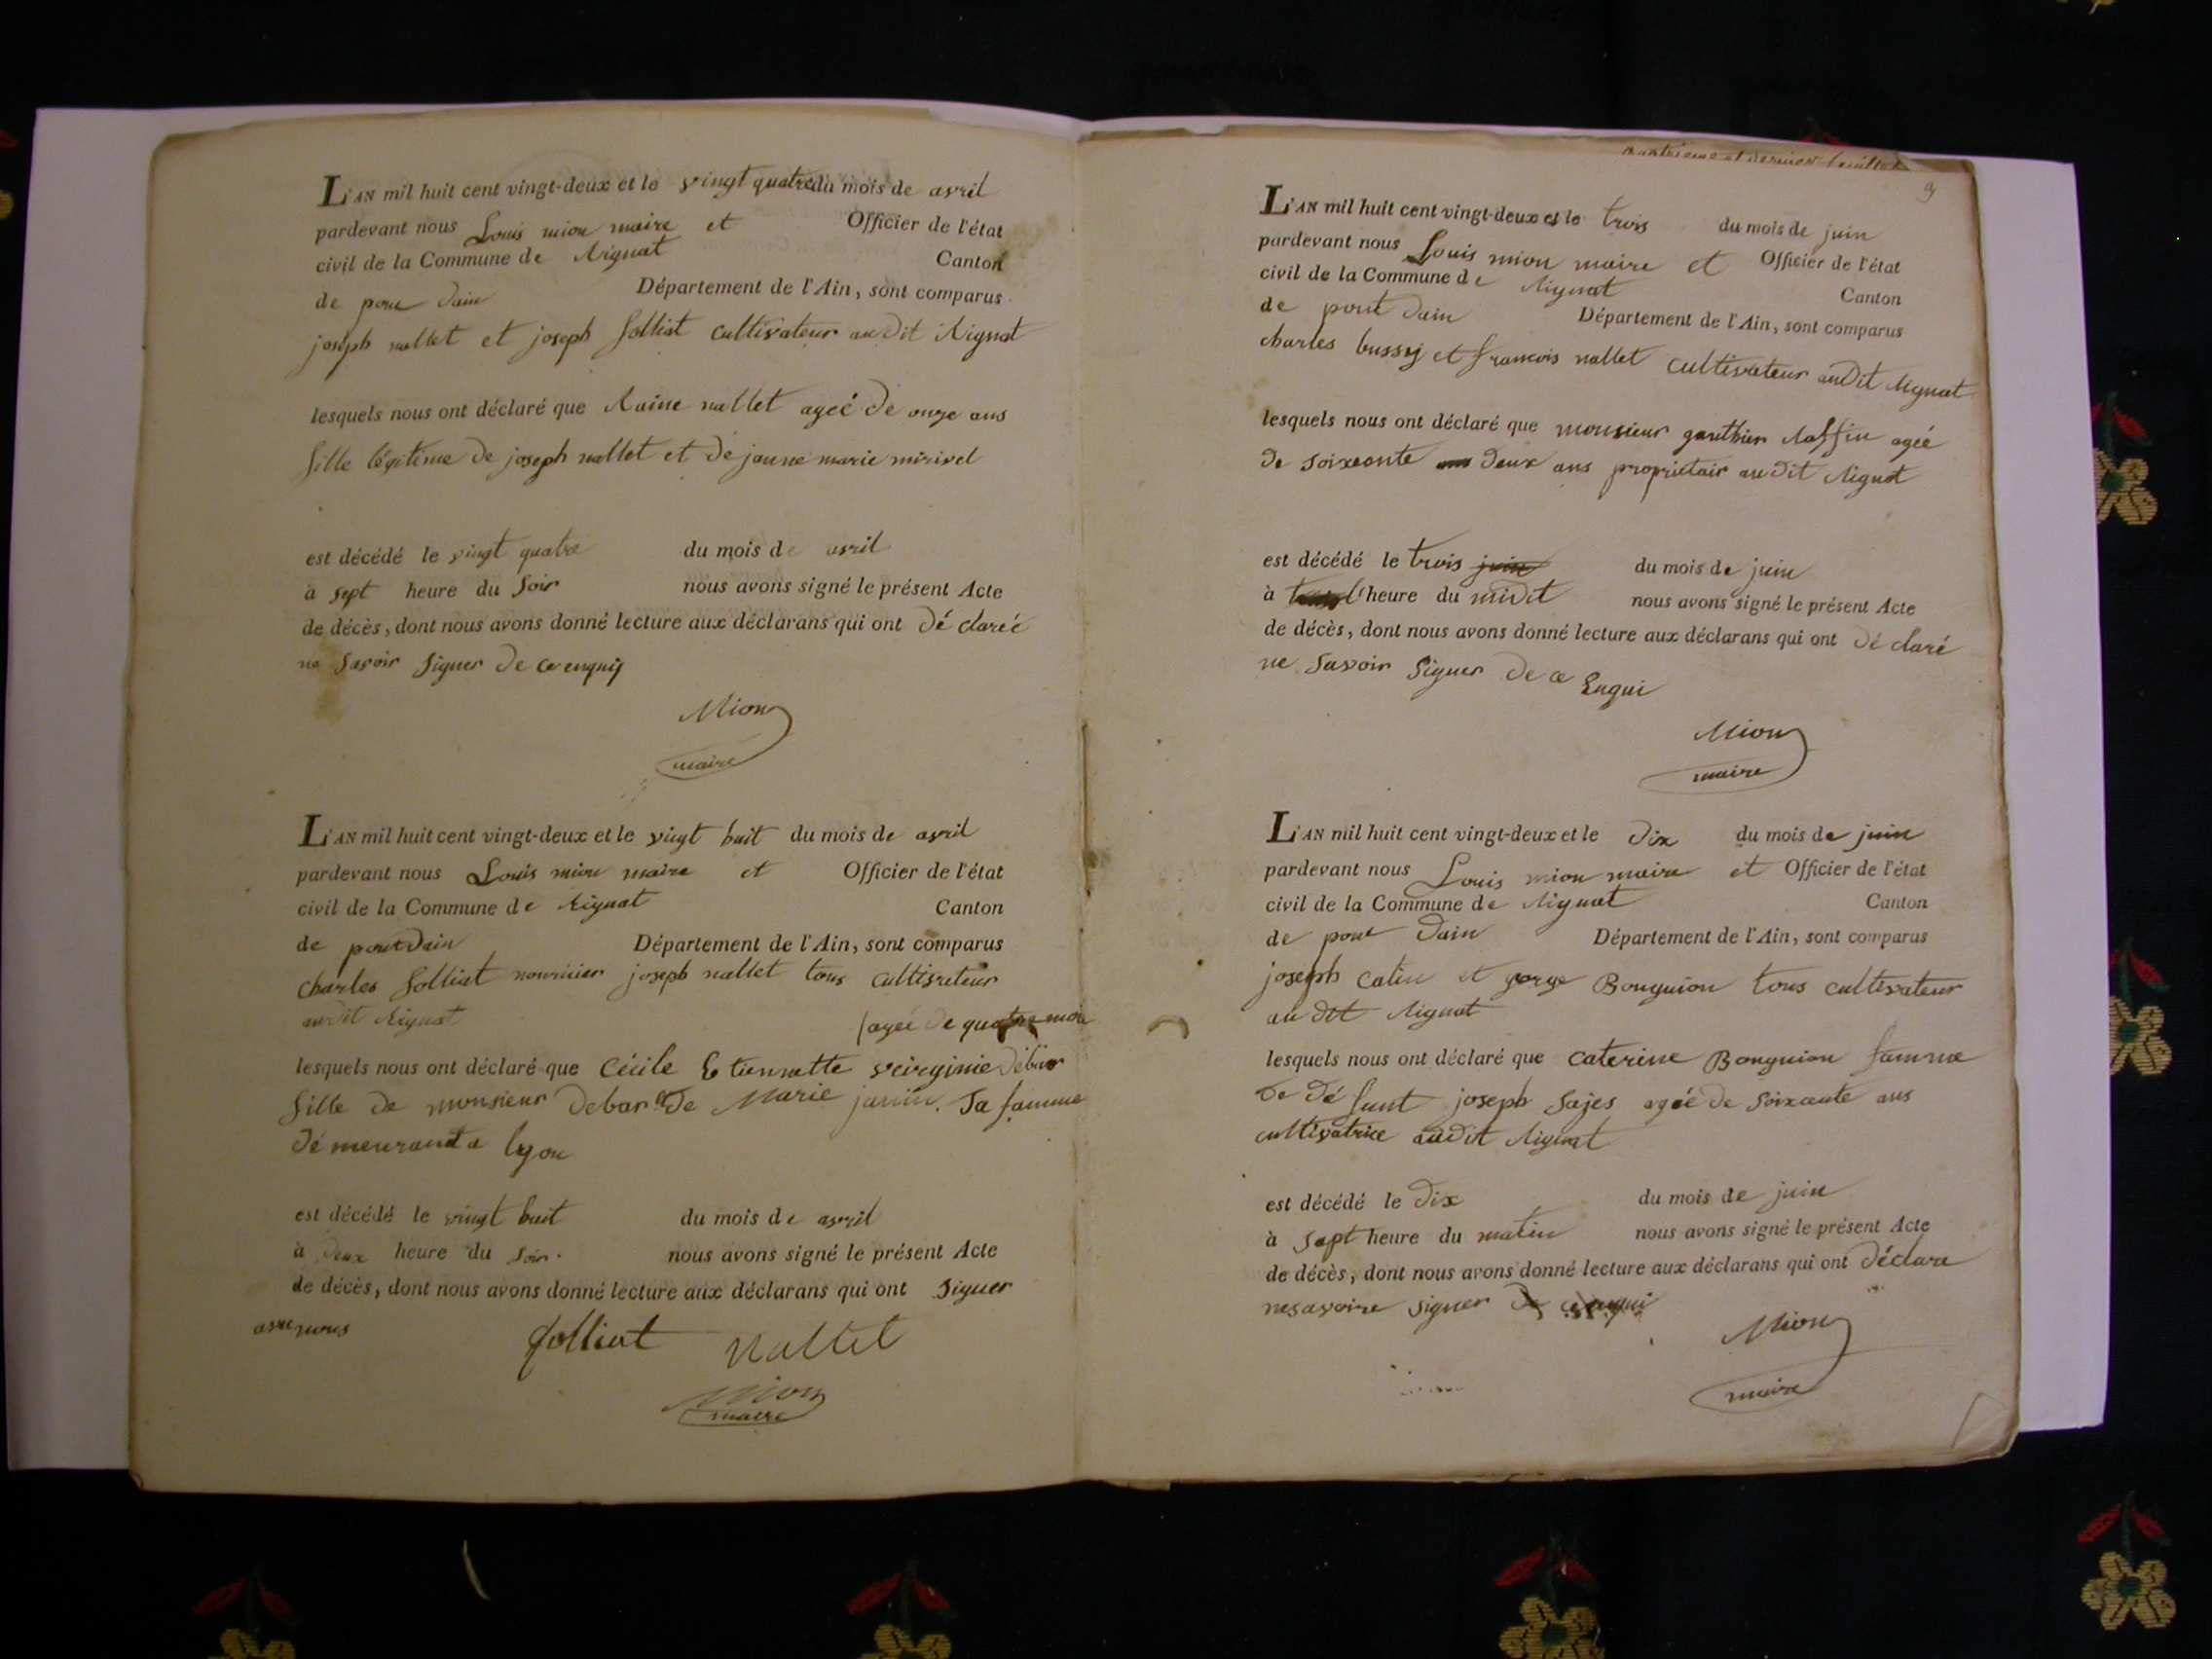 L'AN mil huit cent vingt-deux et le vingt quatre du mois de avril
pardevant nous Louis mion maire et Officier de l'état
civil de la Commune de Rignat Canton
de pont dain Département de l'Ain, sont comparus
joseph nallet et joseph folliat cultivateur audit Rignat
lesquels nous ont déclaré que Raine nallet ageé de onze ans
fille légitime de joseph nallet et de jeanne marie mirivel
est décédé le vingt quatre du mois de avril
à sept heure du soir nous avons signé le présent Acte
de décès, dont nous avons donné lecture aux déclarans qui ont dé clareé
ne savoir signer de ce enquis
Mion
maire
L'AN mil huit cent vingt-deux et le vingt huit du mois de avril
pardevant nous Louis mion maire et Officier de l'état
civil de la Commune de Rignat Canton
de pont dain Département de l'Ain, sont comparus
charles folliat joseph nallet tous cultivateur
audit Rignat
ageé de quatre mois
lesquels nous ont déclaré que Cécile Etiennette veirginie debar
fille de monsieur debar et de Marie janin sa famme
dé meurant a lyon
est décédé le vingt huit du mois de avril
à deux heure du soir nous avons signé le présent Acte
de décès, dont nous avons donné lecture aux déclarans qui ont signer
avec nous
folliat nallet
Mion
maire
quatrieme et dernier feuillet
L'AN mil huit cent vingt-deux et le trois du mois de juin
pardevant nous Louis mion maire et Officier de l'état
civil de la Commune de Rignat Canton
de pont dain Département de l'Ain, sont comparus
charles bussy et francois nallet cultivateur audit Rignat
lesquels nous ont déclaré que monsieur gauthier ageé
de soixeante deux ans proprietair audit Rignat
est décédé le trois juin du mois de juin
à l'heure du midit nous avons signé le présent Acte
de décès, dont nous avons donné lecture aux déclarans qui ont dé claré
ne savoir signer de ce Enqui
Mion
maire
L'AN mil huit cent vingt-deux et le dix du mois de juin
pardevant nous Louis mion maire et Officier de l'état
civil de la Commune de Rignat Canton
de pont dain Département de l'Ain, sont comparus
joseph catin et gorge Bonguion tous cultivateur
au dit Rignat
lesquels nous ont déclaré que caterine Bonguion famme
de dé funt joseph sajes ageé de soixcante ans
cultivatrice audit Rignat
est décédé le dix du mois de juin
à sept heure du matin nous avons signé le présent Acte
de décès, dont nous avons donné lecture aux déclarans qui ont déclare
nesavoire signer de ce enqui
Mion
maire